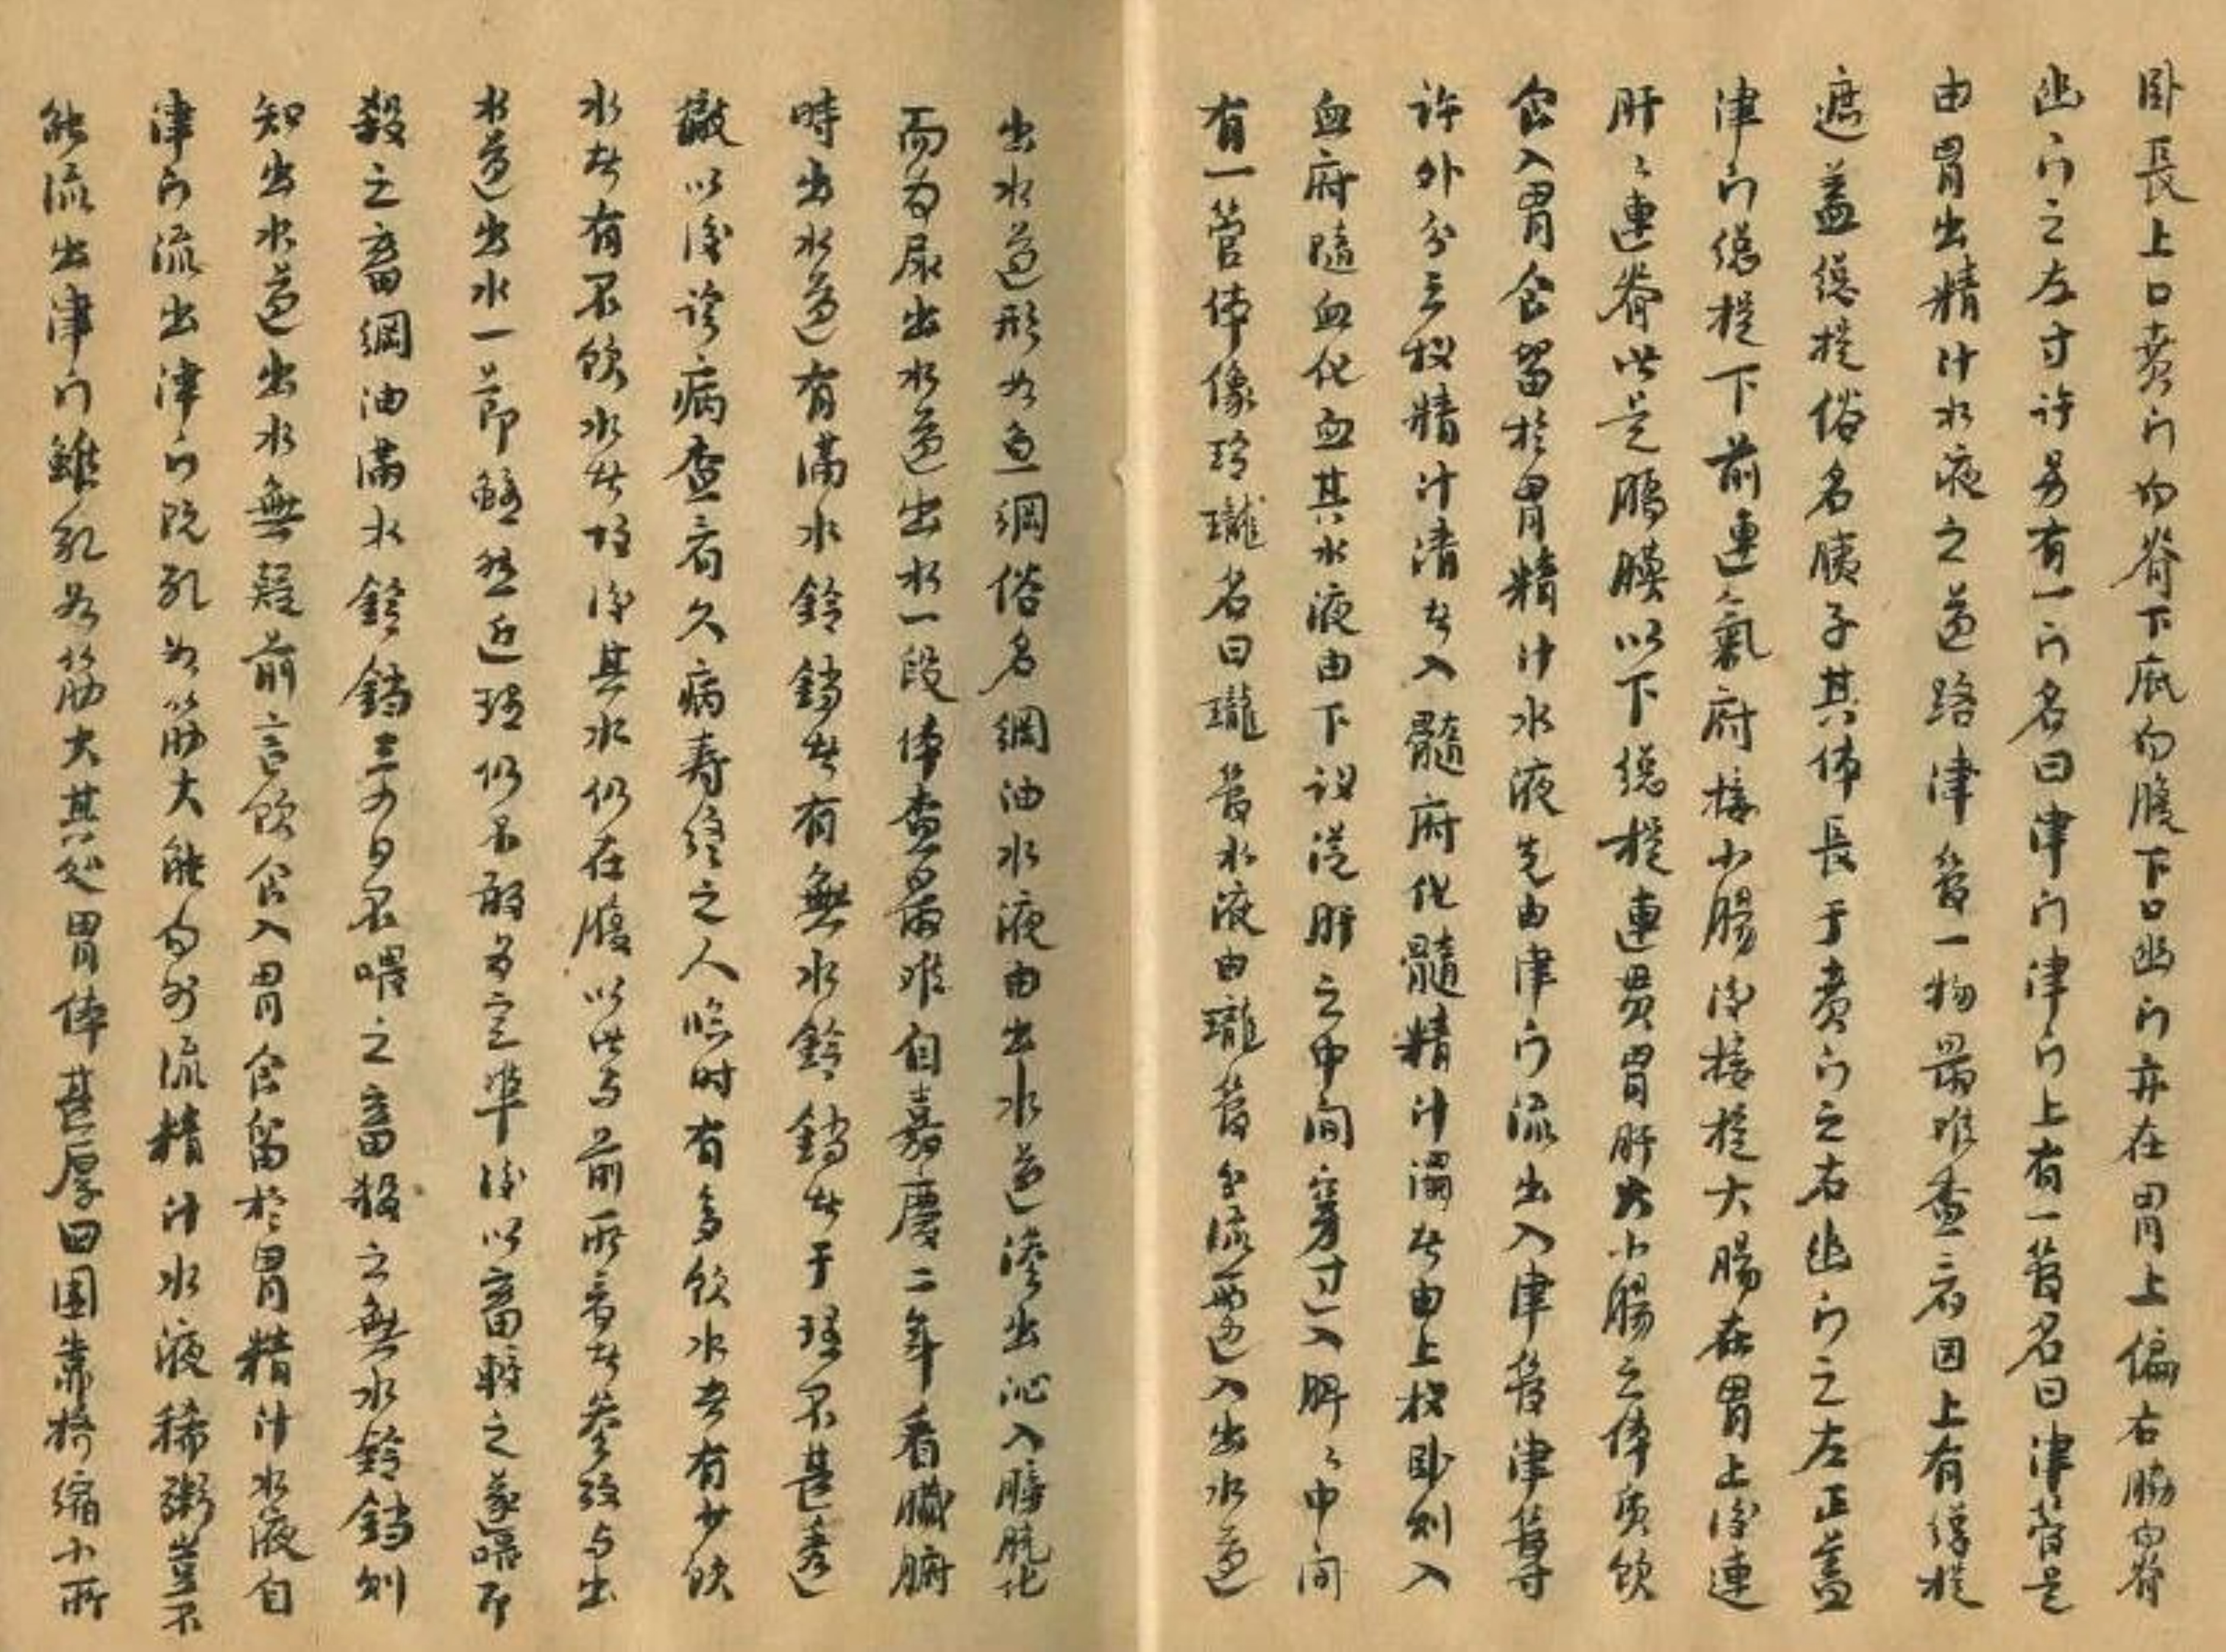 卧長上口賁门向脊下底向腹下口幽门亦在胃上偏右脇向脊
幽门之左寸许另有一门名曰津门津门上有一管名曰津管是
由胃出精汁水液之道路津管一物最难查看因上有總提
遮蓋總提俗名胰子其体長于賁门之右幽门之左正蓋
津门總提下前連氣府接小腸後接提大腸在胃上後連
肝肝連脊此是膈膜以下總提連貫胃肝大小腸之体质飲
食入胃食留於胃精汁水液先由津门流出入津管津管
许外分三杈精汁清者入髓府化髓精汁濁者由上杈卧则入
血府隨血化血其水液由下杈從肝之中间穿过入脾脾中间
有一管体像玲瓏名曰瓏管水液由瓏管分流两边入出水道
出水道形如鱼網俗名網油水液由出水道滲出沁入膀胱化
而为尿出水道出水一段体查最难自嘉慶二年看臟腑
時出水道有滿水鈴鐺者有無水鈴鐺者于理不甚透
徹以後诊病查看久病寿终之人临时有多飲水者有少飲
水者有不飲水者故後其水仍在腹以此与前所看者参考与出
水道出水一節雖然近理仍不敢为定準後以畜騐之遂喂即
殺之畜網油滿水鈴鐺三四日不喂之畜殺之無水鈴鐺则
知出水道出水無疑前言飲食入胃食留於胃精汁水液自
津门流出津门既孔如筋大能向外流精汁水液稀粥豈不
能流出津门雖孔如筋大其处胃体甚厚四围靠擠缩小所